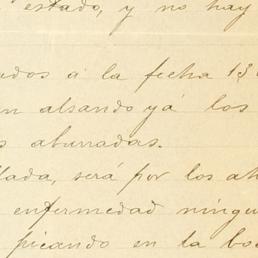 estado, y no hay
ados á la fecha 13
n alsando yá los
s aburradas.
llada, será por los
enfermedad ningu
picando en la bo